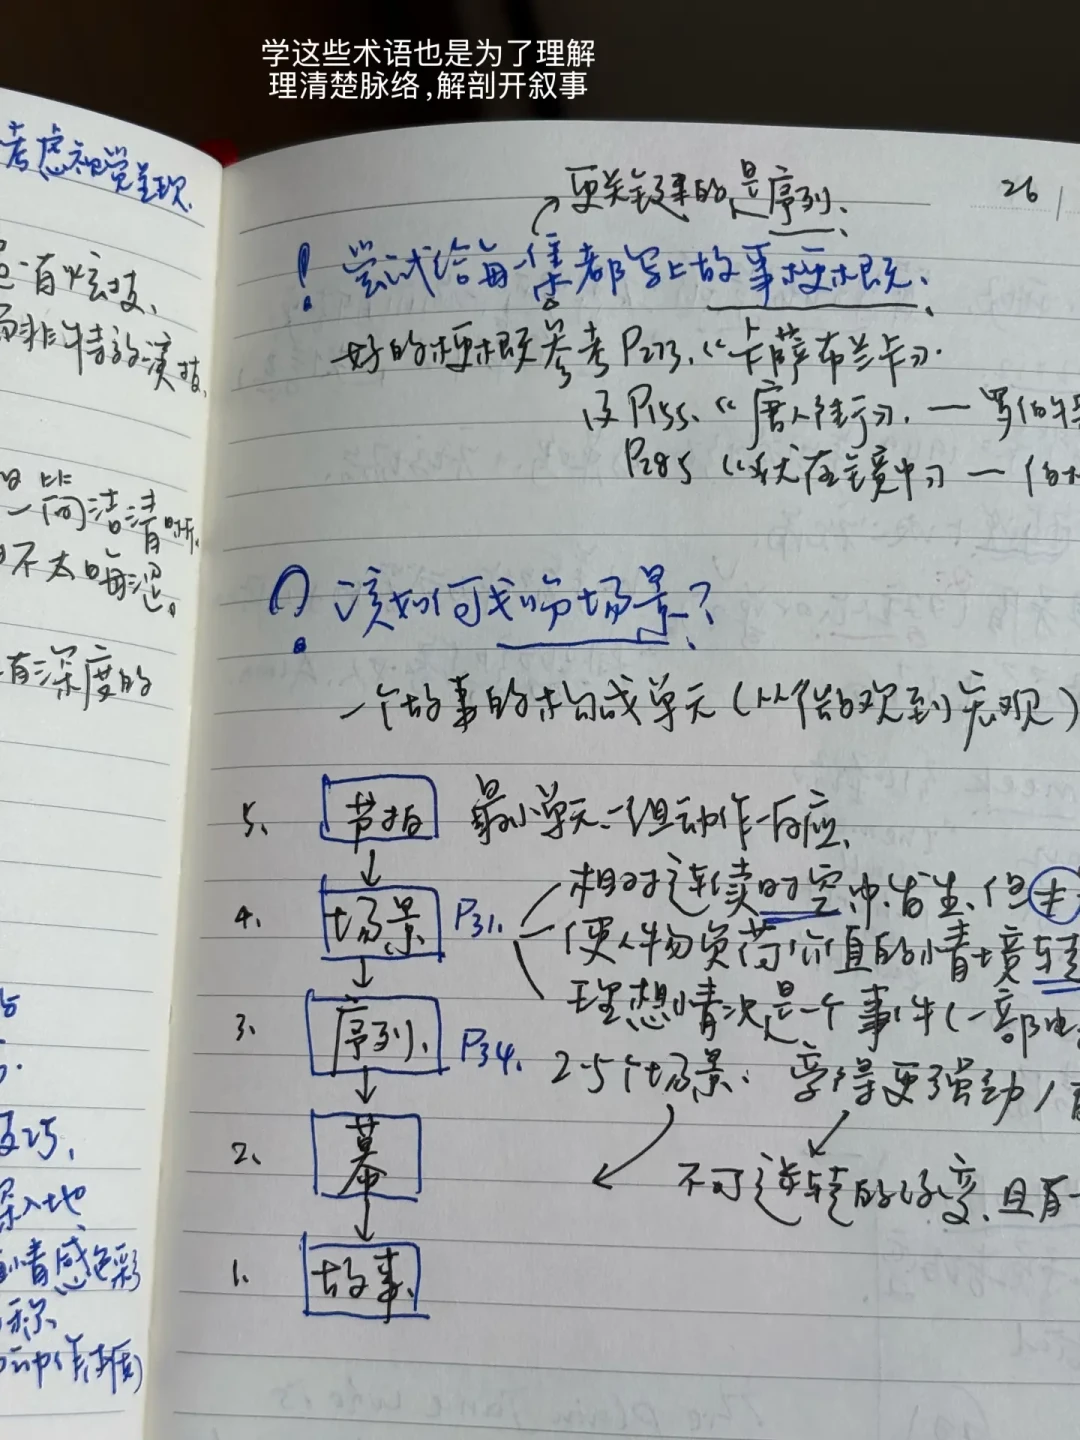 学这些术语也是为了理解
理清楚脉络,解剖开叙事
考虑视觉呈现.
有炫技、
而非特效演技.
简洁清晰.
不太晦涩。
有深度的
深入地
情感色彩
26
更关键的是序列、
! 尝试给每一集都写上故事梗概、
好的梗概参考P273.《卡萨布兰卡》.
及P155.《唐人街》. 一 罗伯特
P285《犹在镜中》一 伯
该如何找吻场景?
一个故事的构成单元(从微观到宏观)
5、 节拍 最小单元、一组动作一反应、
4、 场景 P31. 相对连续时空中发生、但主
使人物负荷价值的情境转
理想情况是一个事件(一部电
3、 序列、 P34. 2-5个场景.
2、 幕 不可逆转的改变、且有一
1、 故事、